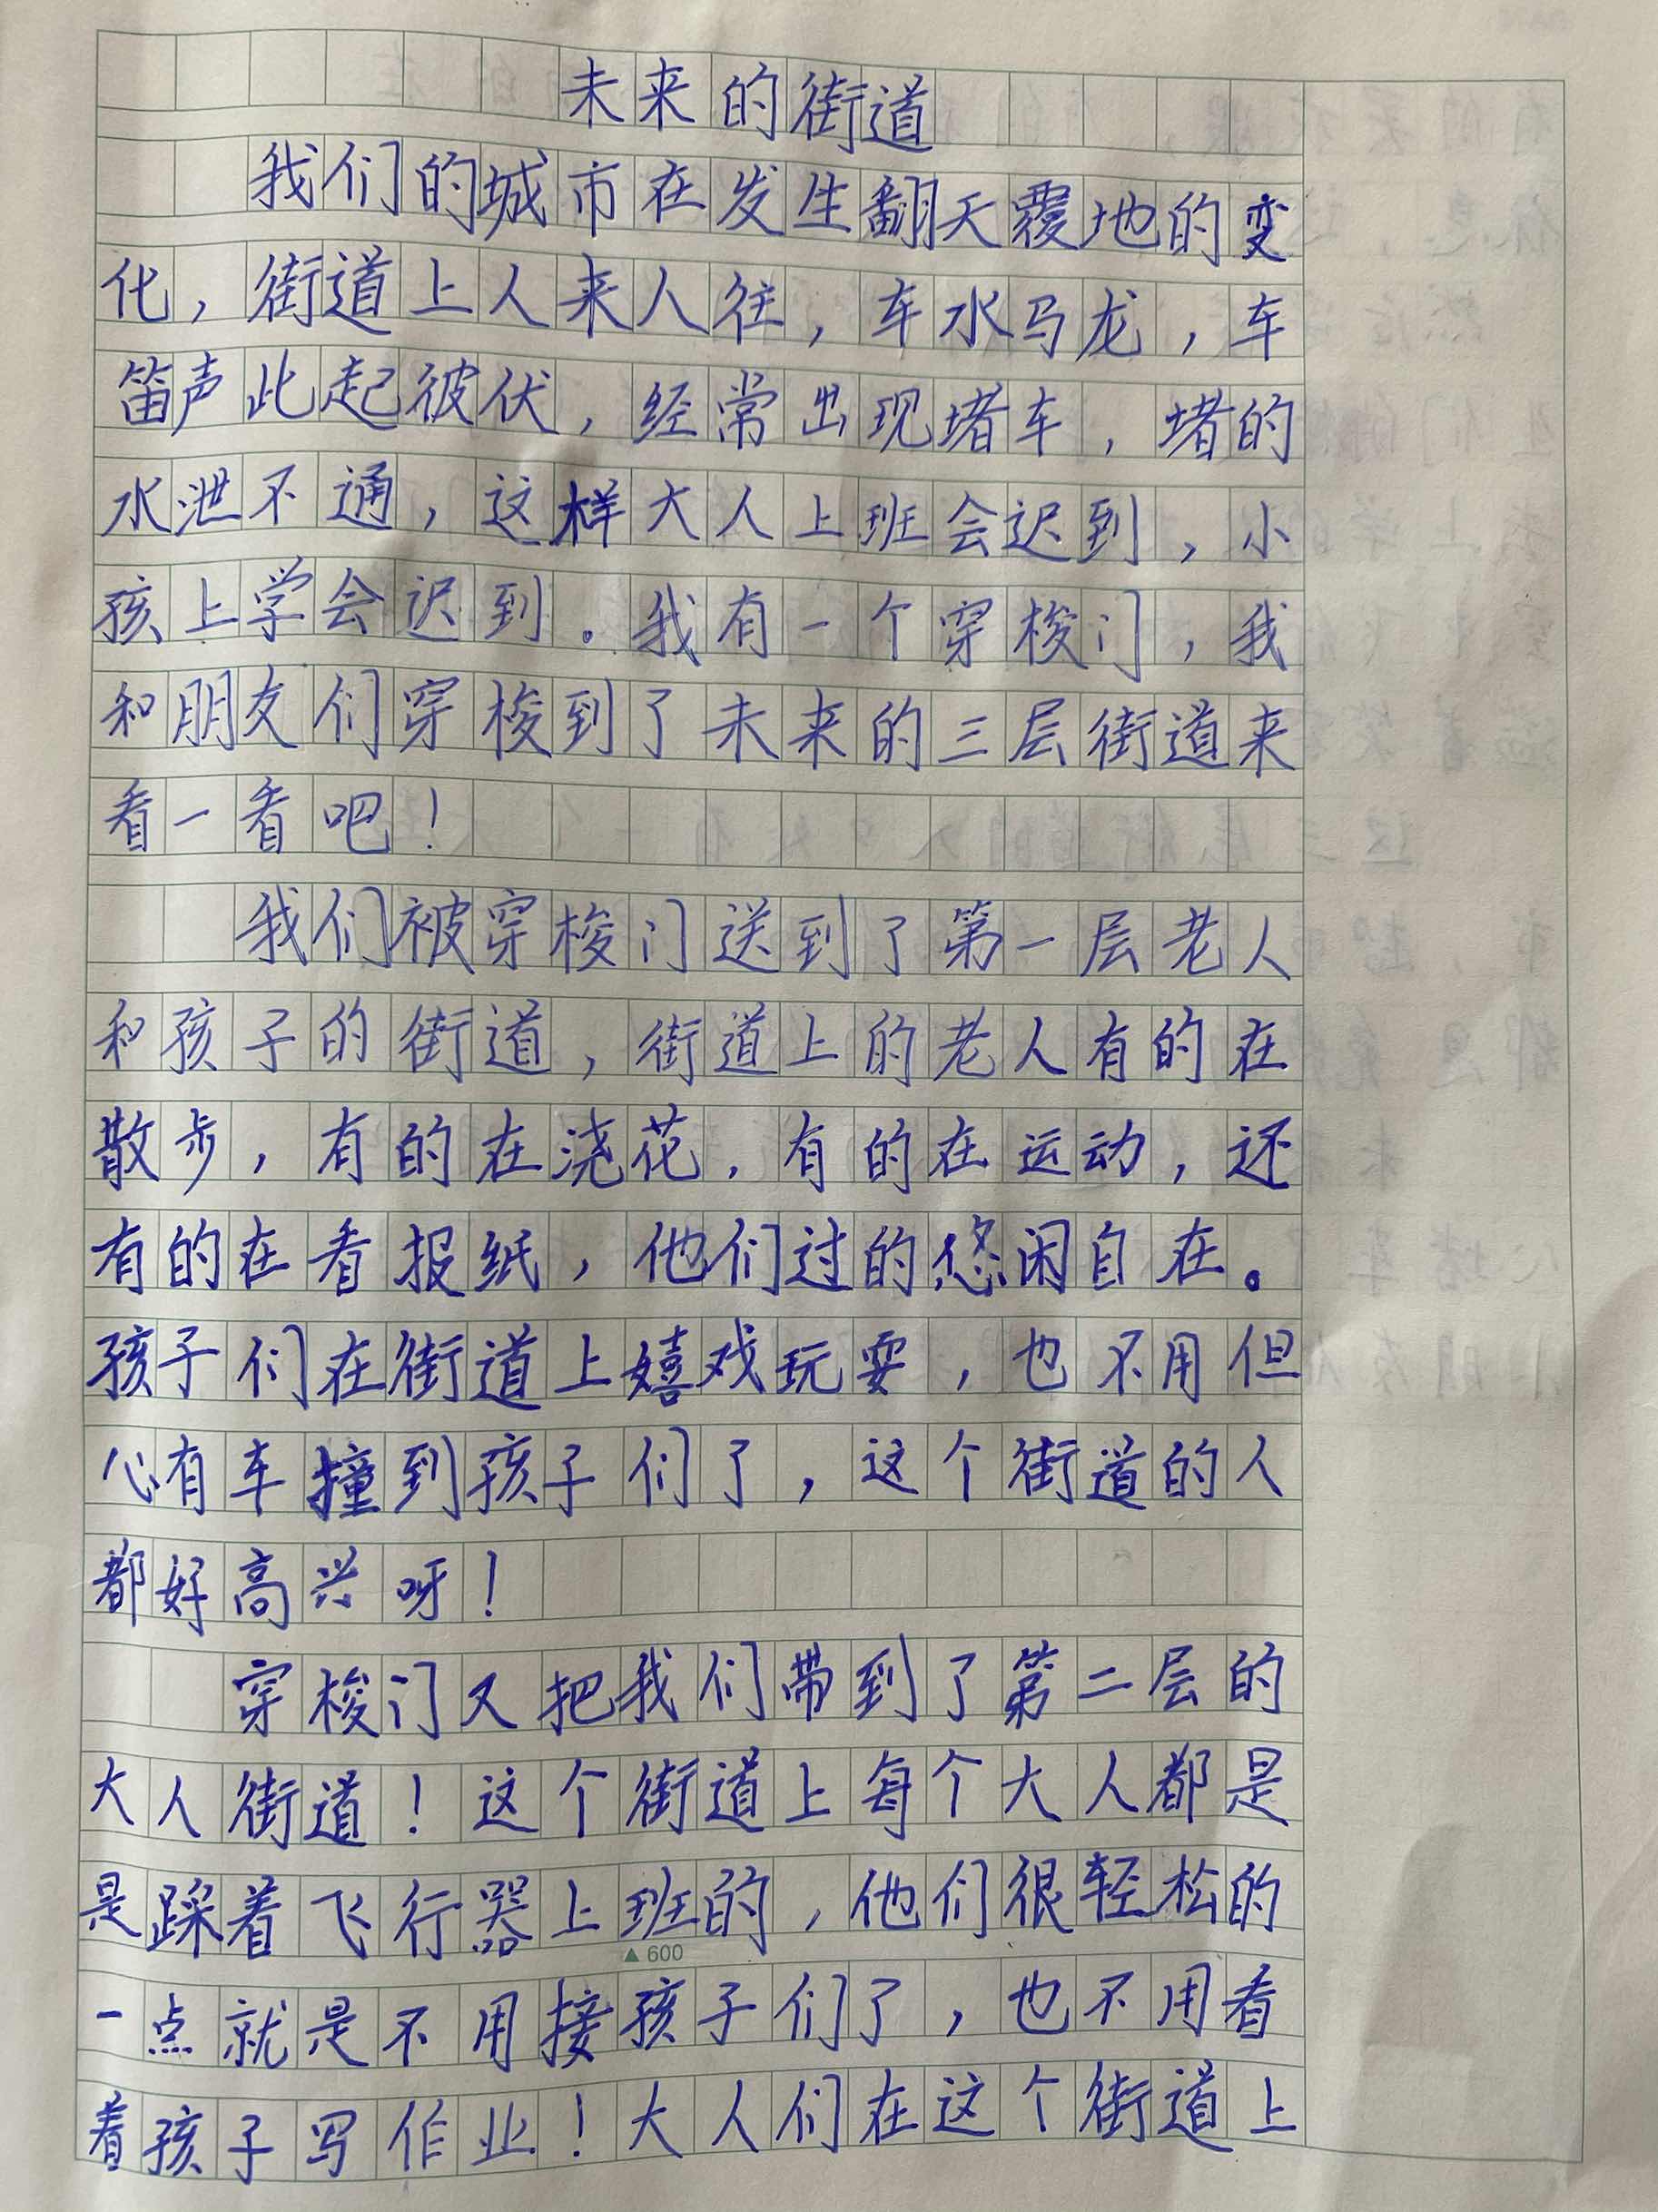 未来的街道
我们的城市在发生翻天覆地的变
化，街道上人来人往，车水马龙，车
笛声此起彼伏，经常出现堵车，堵的
水泄不通，这样大人上班会迟到，小
孩上学会迟到。我有一个穿梭门，我
和朋友们穿梭到了未来的三层街道来
看一看吧！
我们被穿梭门送到了第一层老人
和孩子的街道，街道上的老人有的在
散步，有的在浇花，有的在运动，还
有的在看报纸，他们过的悠闲自在。
孩子们在街道上嬉戏玩耍，也不用但
心有车撞到孩子们了，这个街道的人
都好高兴呀！
穿梭门又把我们带到了第二层的
大人街道！这个街道上每个大人都是
是踩着飞行器上班的，他们很轻松的
▲600
一点就是不用接孩子们了，也不用看
着孩子写作业！大人们在这个街道上